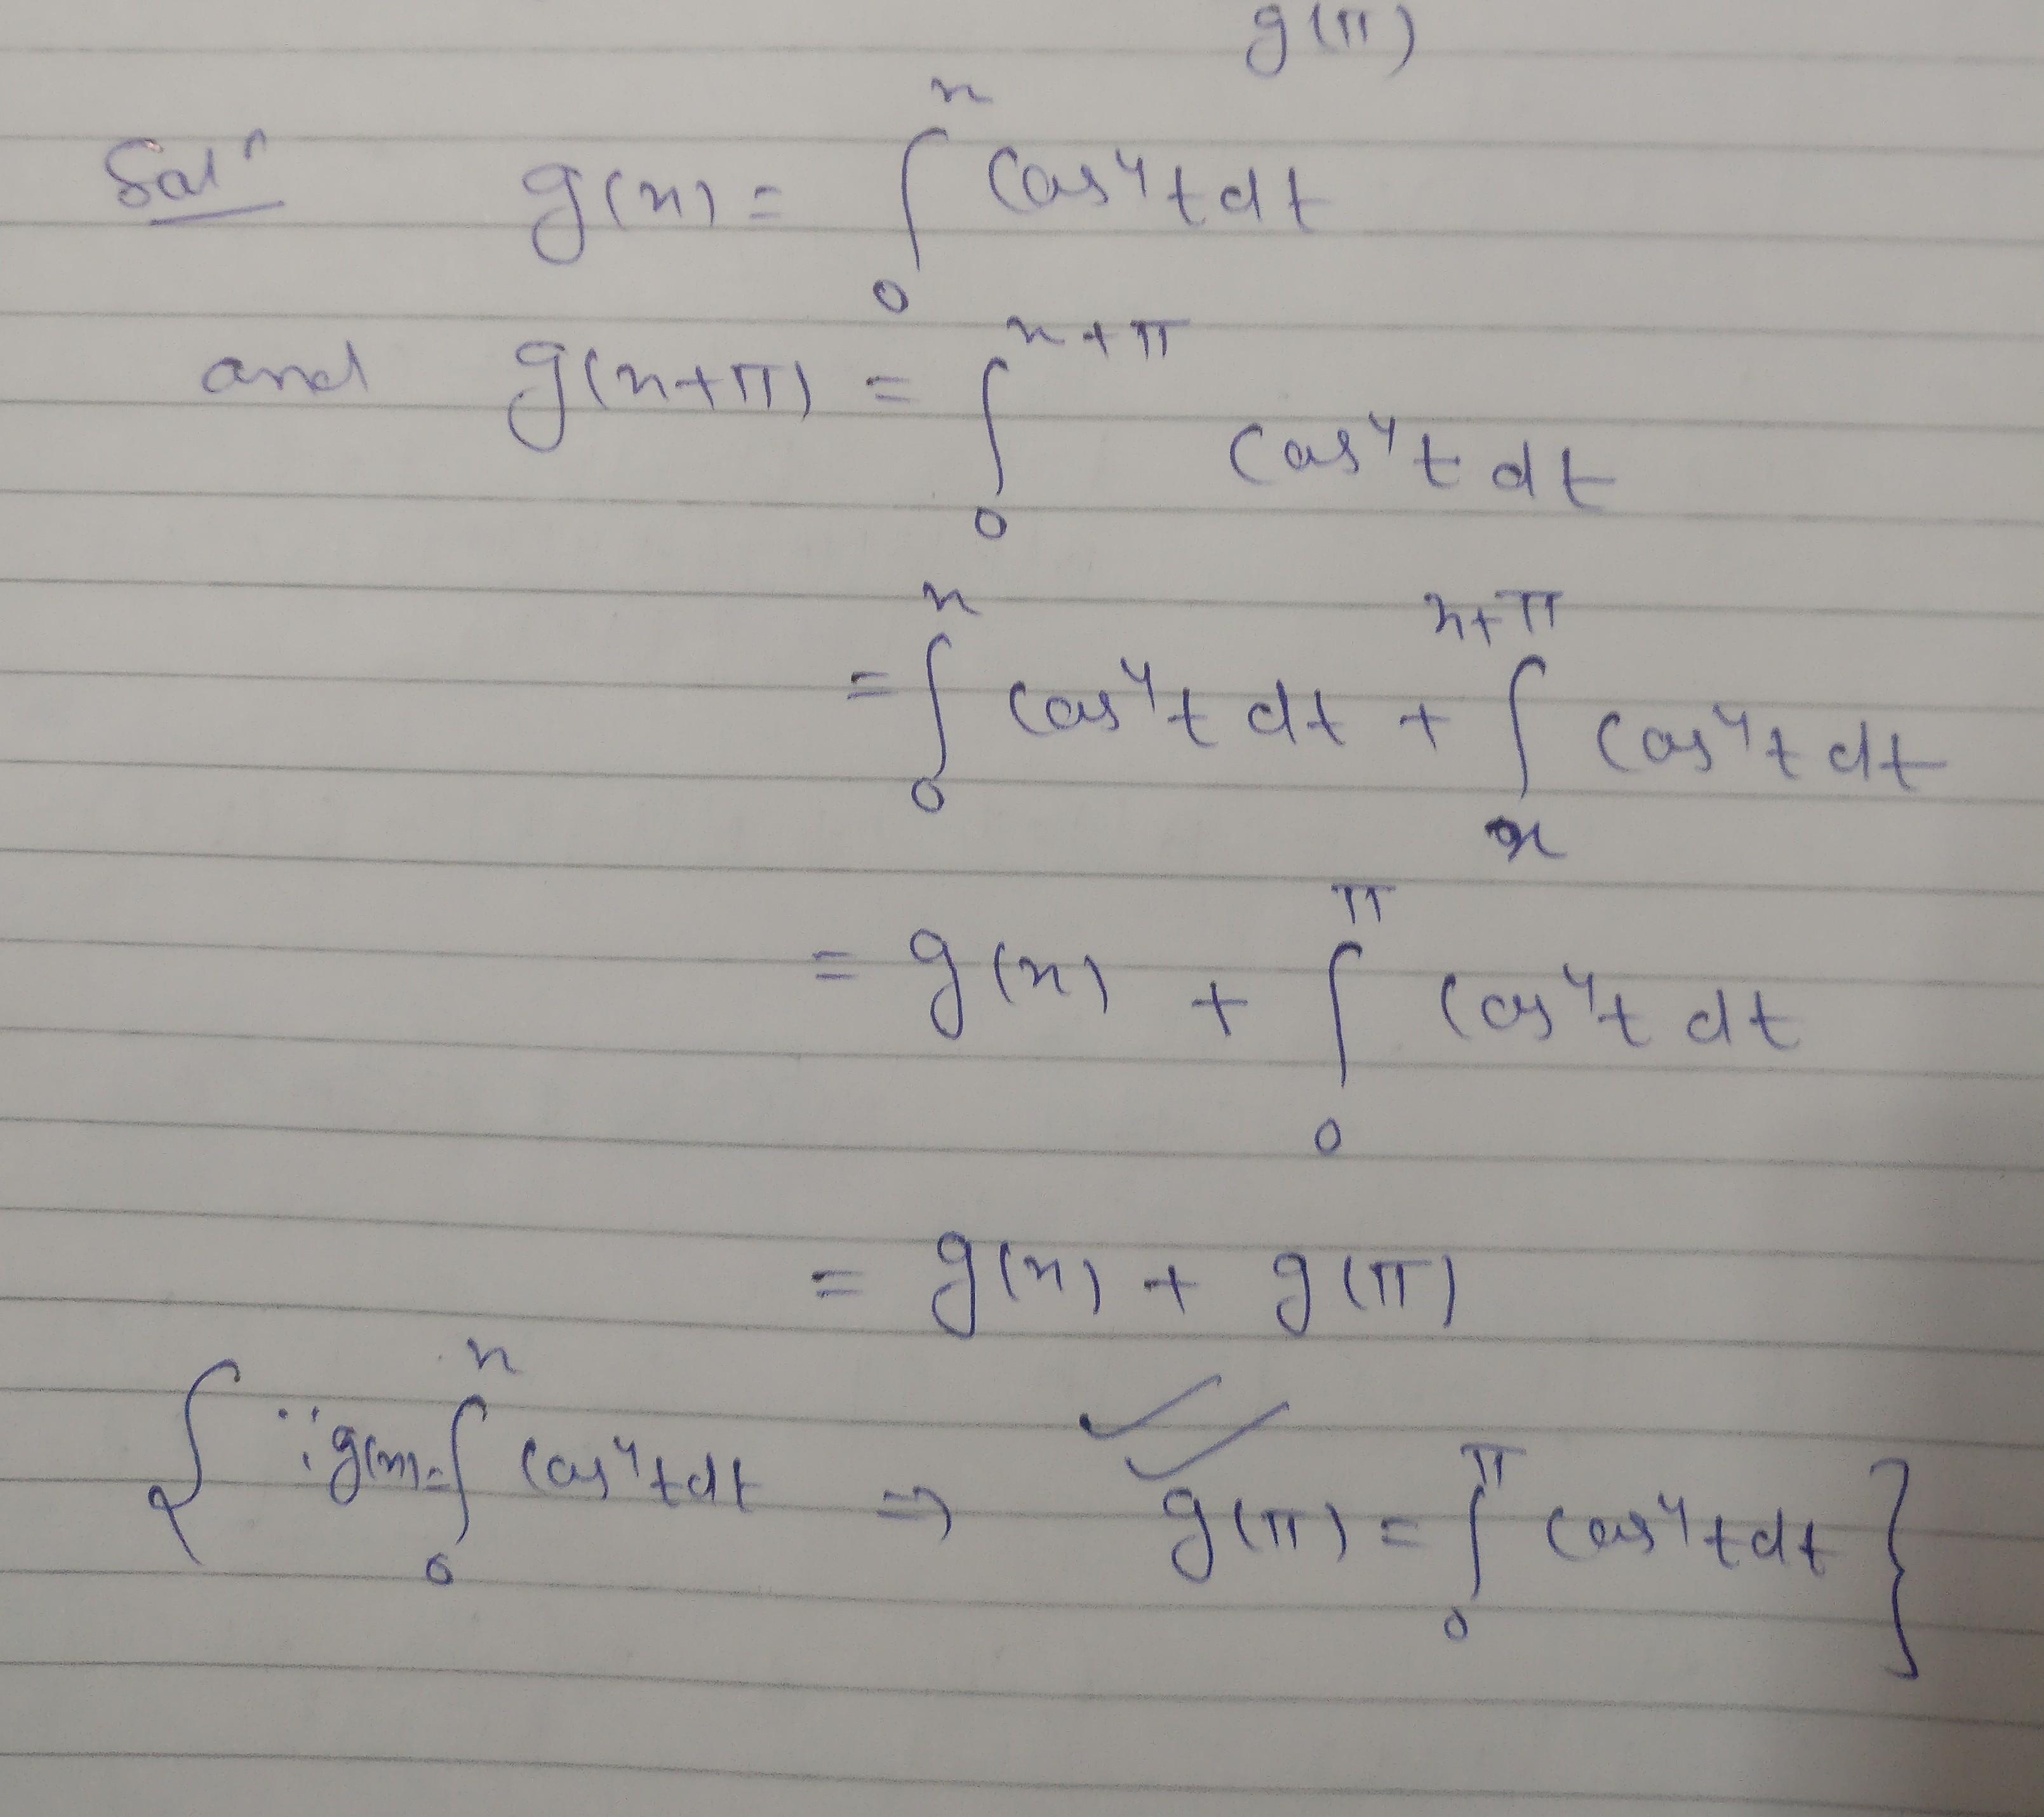 g(π)
Solⁿ g(x) = ∫₀ˣ Cos⁴t dt
and g(x+π) = ∫₀ˣ⁺π Cos⁴t dt
= ∫₀ˣ Cos⁴t dt + ∫ₓˣ⁺π Cos⁴t dt
= g(x) + ∫₀π Cos⁴t dt
= g(x) + g(π)
{ ∵ g(x) = ∫₀ˣ Cos⁴t dt ⇒ g(π) = ∫₀π Cos⁴t dt }